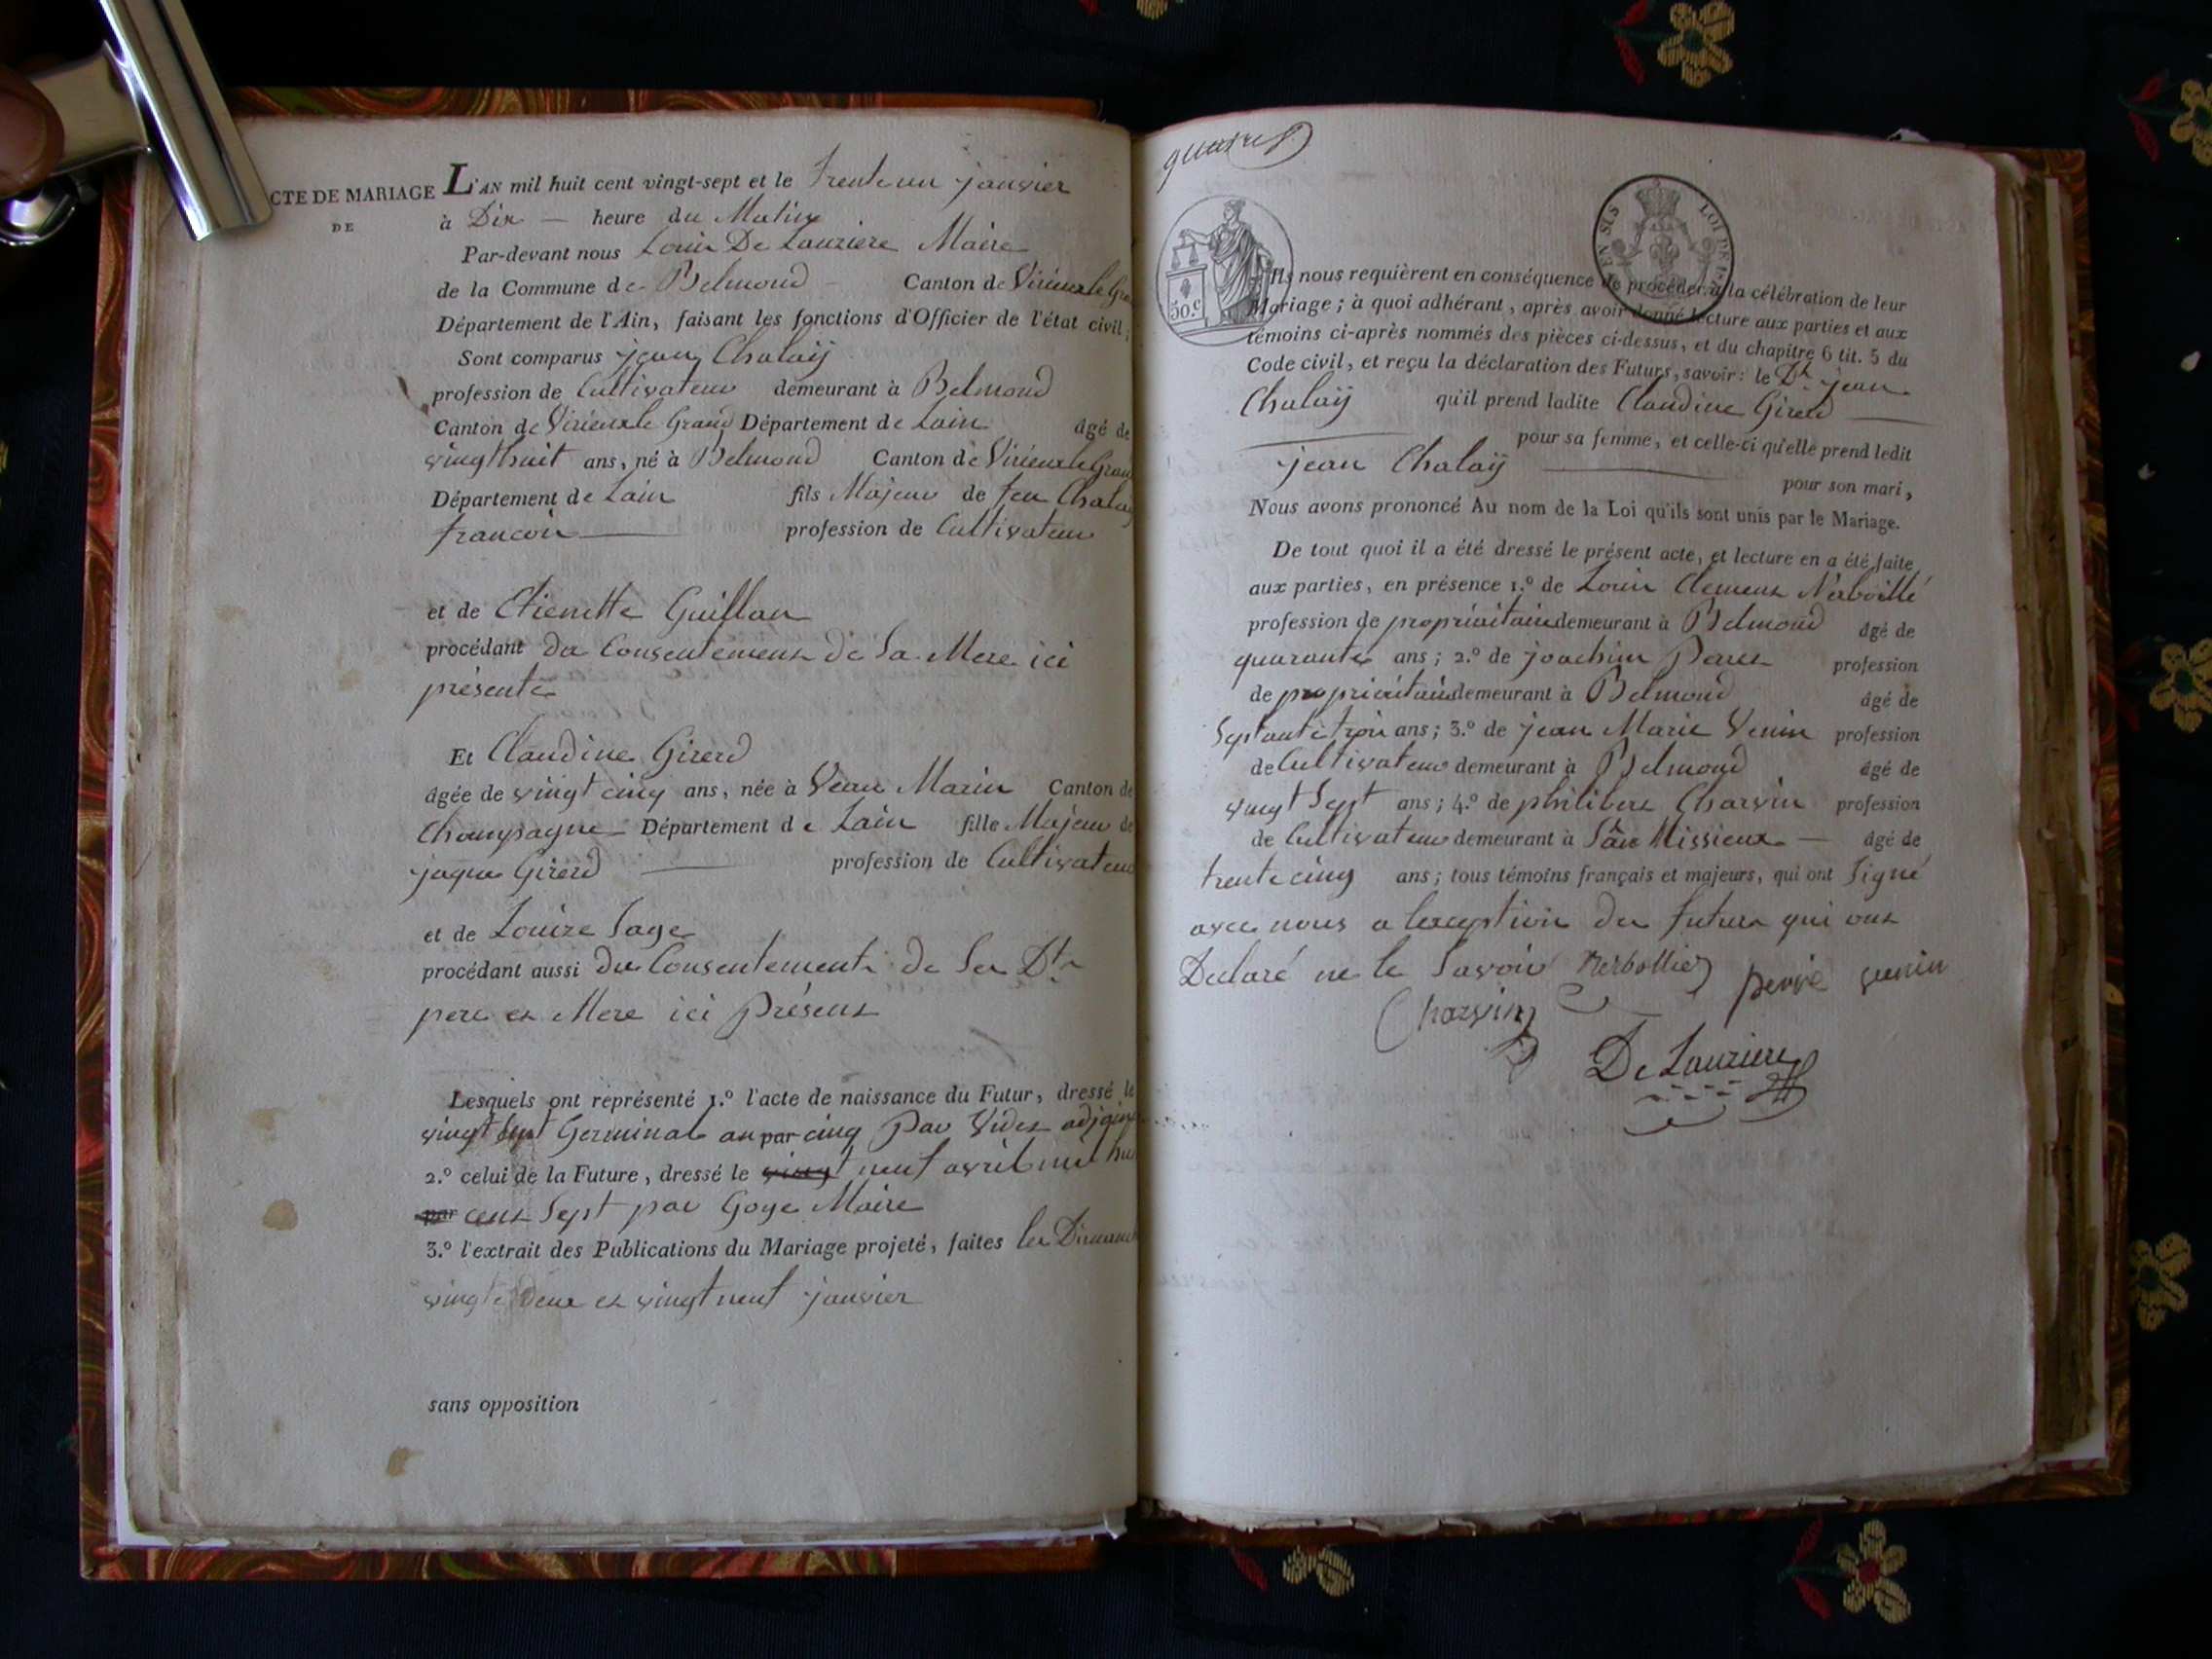 CTE DE MARIAGE
DE
L'AN mil huit cent vingt-sept et le trente un janvier
à Dix heure du Matin
Par-devant nous Louis De Lauziere Maire
de la Commune de Belmond Canton de Virieux le Gra
Département de l'Ain, faisant les fonctions d'Officier de l'état civil;
Sont comparus jean Chalaÿ
profession de Cultivateur demeurant à Belmond
Canton de Virieux le Grand Département de Lain âgé de
vingt huit ans, né à Belmond Canton de Virieux le Gran
Département de Lain fils Majeur de feu Chalaÿ
francois profession de Cultivateur
et de Etienette Guillan
procédant du Consentement de Sa Mere ici
présente
Et Claudine Girerd
âgée de vingt cinq ans, née à Marin Canton de
Champagne Département de Lain fille Majeur de
jaque Girerd profession de Cultivateur
et de Louize Sage
procédant aussi du Consentement de Ses Dts
pere et Mere ici Présent
Lesquels ont représenté 1.º l'acte de naissance du Futur, dressé le
vingt Sept Germinal an par cinq Par Videt adjoin
2.º celui de la Future, dressé le vingt neuf avril mil hui
par cent Sept par Goye Maire
3.º l'extrait des Publications du Mariage projeté, faites les Dimanch
vingt deux et vingt neuf janvier
sans opposition
quatre
50.c
EN SUS LOI DE
Ils nous requièrent en conséquence de procéder à la célébration de leur
Mariage; à quoi adhérant, après avoir donné lecture aux parties et aux
témoins ci-après nommés des pièces ci-dessus, et du chapitre 6 tit. 5 du
Code civil, et reçu la déclaration des Futurs, savoir: le Dt jean
Chalaÿ qu'il prend ladite Claudine Girerd
pour sa femme, et celle-ci qu'elle prend ledit
jean Chalaÿ pour son mari,
Nous avons prononcé Au nom de la Loi qu'ils sont unis par le Mariage.
De tout quoi il a été dressé le présent acte, et lecture en a été faite
aux parties, en présence 1.º de Louis Clement
profession de propriéitaire demeurant à Belmond âgé de
quarante ans; 2.º de joachim profession
de propriéitaire demeurant à Belmond âgé de
Septante trois ans; 3.º de jean Marie Venin profession
de Cultivateur demeurant à Belmond âgé de
vingt Sept ans; 4.º de philibert Charvin profession
de Cultivateur demeurant à Missieux âgé de
trente cinq ans; tous témoins français et majeurs, qui ont Signé
avec nous a lexeption des futurs qui ont
Declaré ne le Savoir Nerbollier perré venin
Charvin
De Lauziere